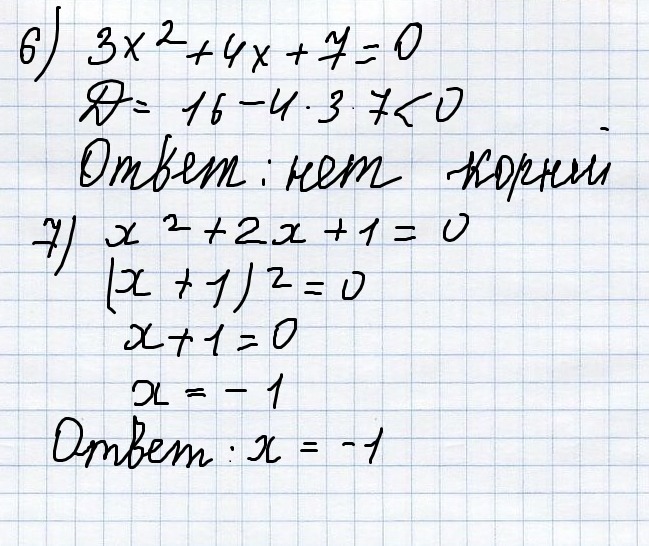 6) 3x² + 4x + 7 = 0
D = 16 - 4 · 3 · 7 < 0
Ответ: нет корний
7) x² + 2x + 1 = 0
(x + 1)² = 0
x + 1 = 0
x = - 1
Ответ: x = -1